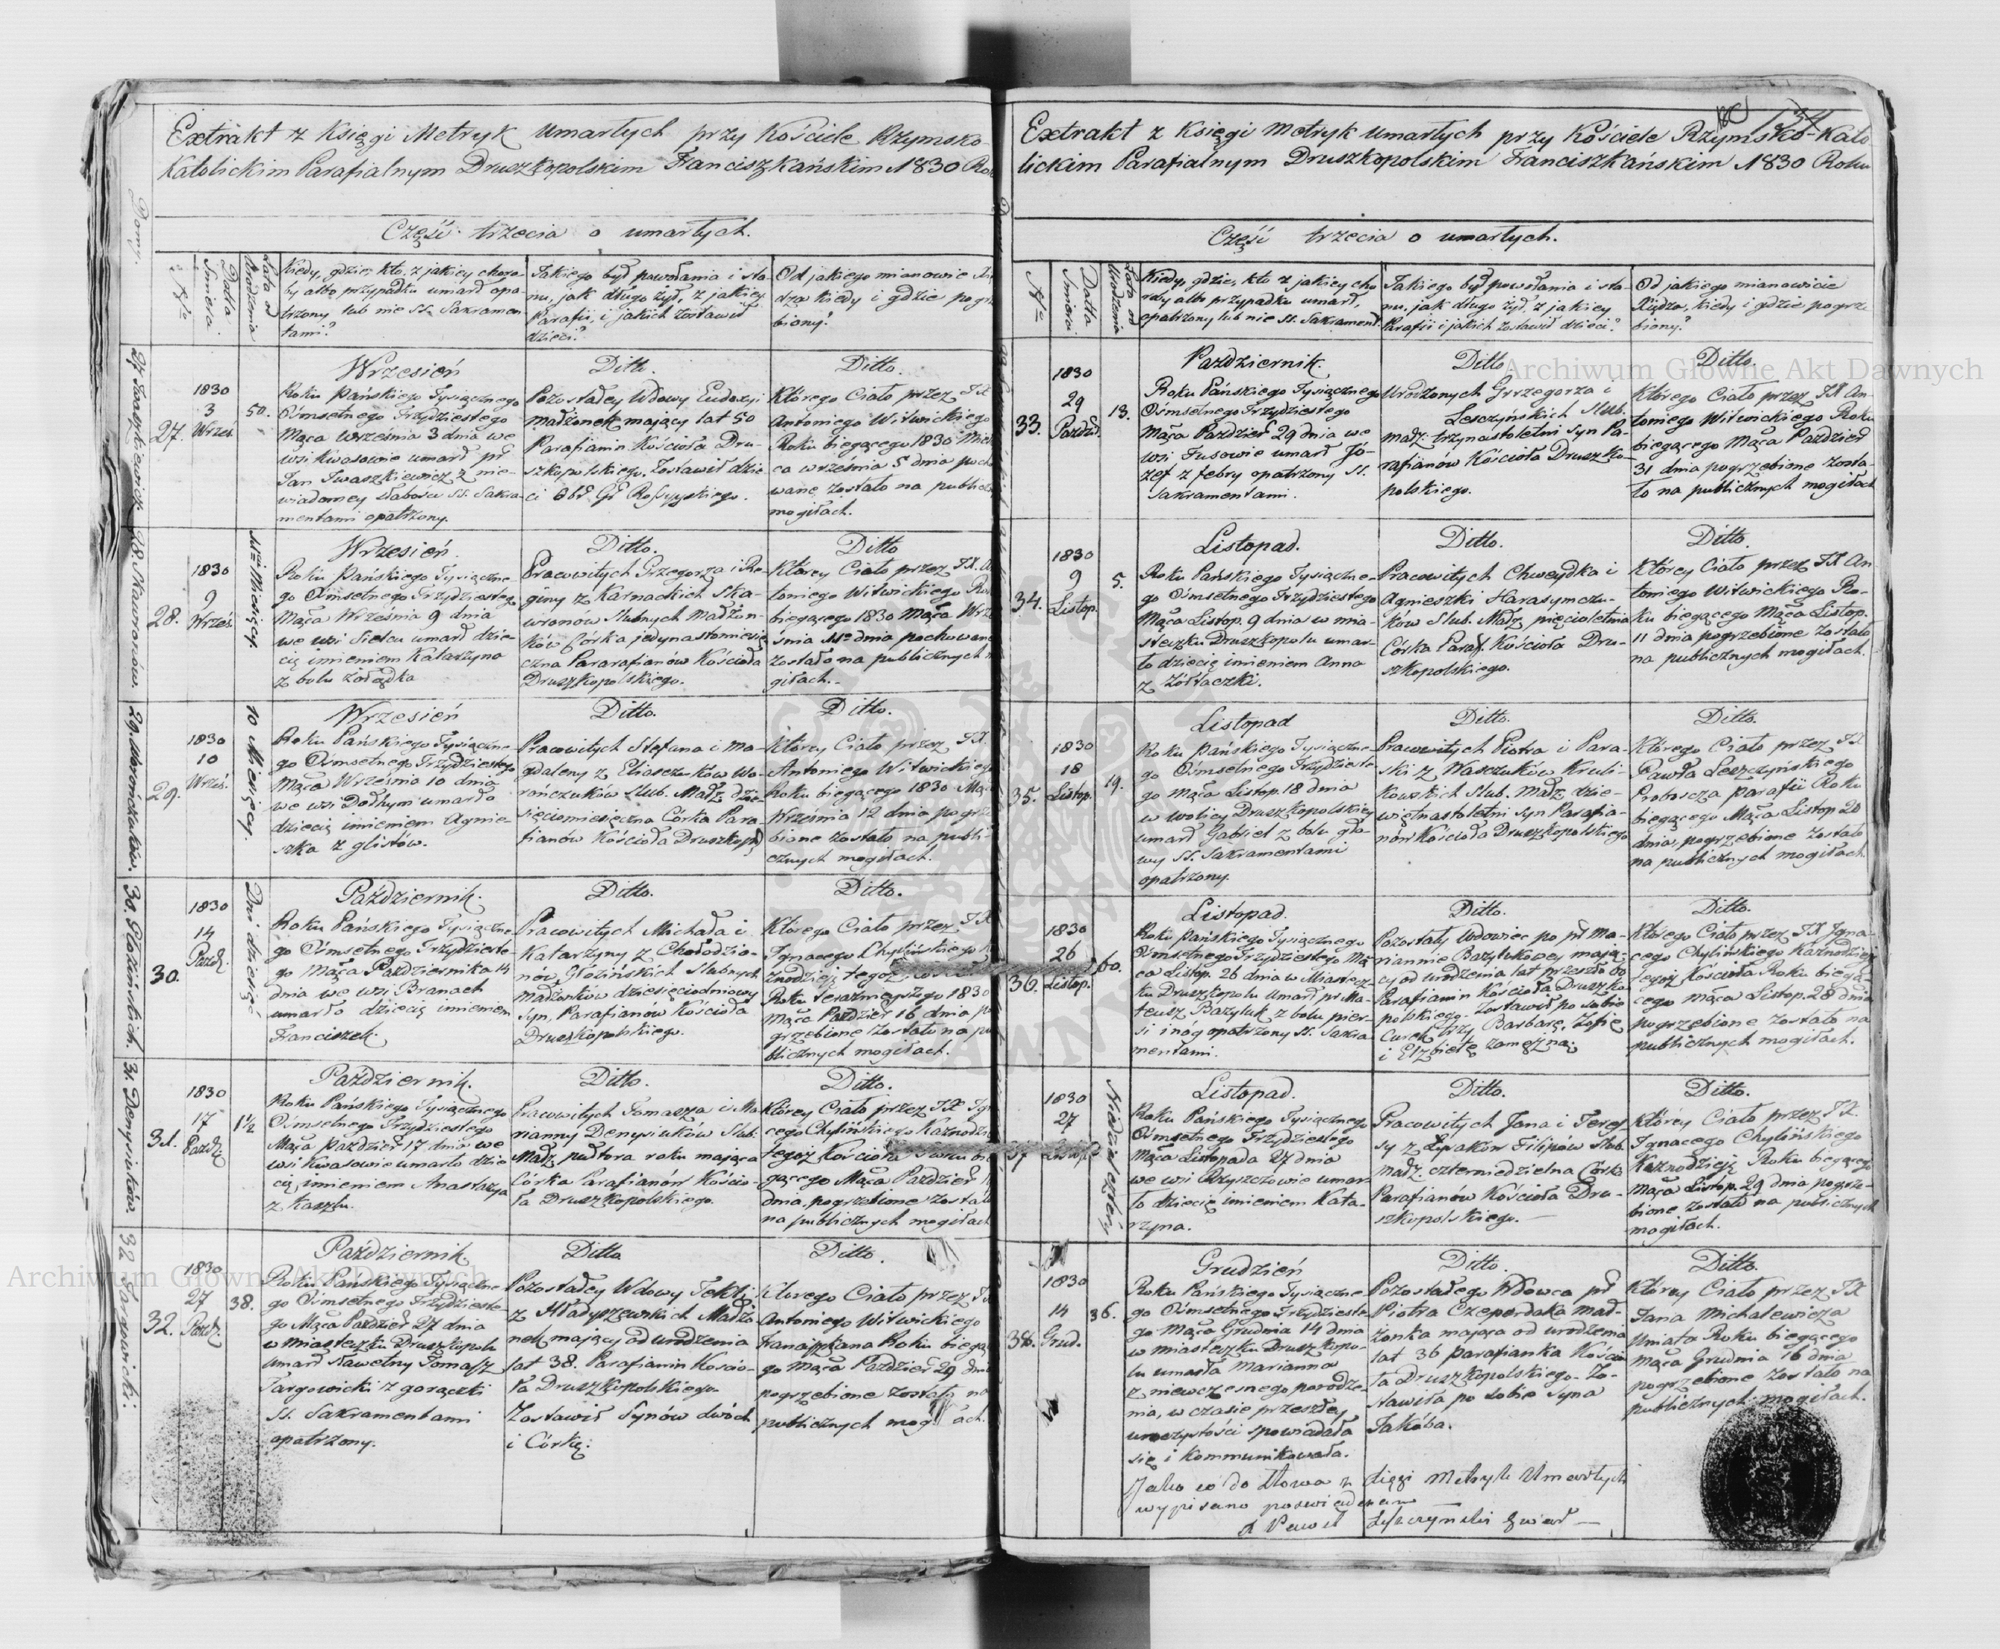 Extrakt z Księgi Metryk umarłych przy Kościele Rzymsko-
Katolickim Parafialnym Druszkopolskim Franciszkańskim 1830 Ro
Część trzecia o umarłych.
№
Datta Smierci.
Lata od Urodzenia
Kiedy, gdzie, kto, z jakiey choro-
by albo przypadku umarł opa-
trzony lub nie SS. Sakramen-
tami?
Jakiego był powołania i sta-
nu, jak długo żył, z jakiey
Parafii, i jakich zostawił
dzieci?
Od jakiego mianowicie Xię
dza kiedy i gdzie pogrze
biony?
27.
1830
3
Wrześ.
50.
Wrzesień
Roku Pańskiego Tysiącznego
Ośmsetnego Trzydziestego
Mąca Września 3 dnia we
wsi Kwasowie umarł pł
Jan Iwaszkiewicz z nie-
wiadomey słabości SS. Sakra-
mentami opatrzony.
Ditto.
Pozostałey Wdowy Eudoxyi
małżonek mający lat 50
Parafianin Kościoła Dru-
szkopolskiego. Zostawił dzie-
ci
Ditto.
Którego Ciało przez JX
Antoniego Witwickiego
Roku biegącego 1830 Mieś
ca września 5 dnia pocho
wane zostało na publicz
mogiłach.
28.
1830
9
Wrześ.
Miesięcy.
Wrzesień.
Roku Pańskiego Tysiączne-
go Ośmsetnego Trzydziestego
Mąca Września 9 dnia
we wsi Sielcu umarł dzie-
cię imieniem Katarzyna
z bolu żołądka
Ditto.
Pracowitych Grzegorza i Re-
giny z Karnackich Ska-
wronów Slubnych Małżon-
ków Córka jedynastomiesię
czna Pararafianów Kościoła
Druszkopolskiego.
Ditto
Którey Ciało przez JX. A
toniego Witwickiego Ro
biegącego 1830 Mąca Wrze
śnia dnia pochowane
zostało na publicznych m
giłach.
29.
1830
10
Wrześ.
10 Miesięcy.
Wrzesień
Roku Pańskiego Tysiączne-
go Ośmsetnego Trzydziestego
Mąca Września 10 dnia
we wsi umarło
dziecię imieniem Agnie-
szka z glistów.
Ditto.
Pracowitych Stefana i Ma-
gdaleny z Eliaszuków Wo-
rończuków Slub. Małż. dzie-
sięciomiesięczna Córka Para-
fianów Kościoła Druszkopol
Ditto.
Którey Ciało przez JX.
Antoniego Witwickiego
Roku biegącego 1830 Mąc
Września 12 dnia pogrze
bione zostało na publi-
cznych mogiłach.
30.
1830
14
Paźdz.
Dni dziesięć
Październik.
Roku Pańskiego Tysiączne
go Ośmsetnego Trzydzieste-
go Mąca Października 14
dnia we wsi Branach
umarło dziecię imieniem
Franciszek.
Ditto.
Pracowitych Michała i
Katarzyny z Chołodzia-
nów Glozińskich Slubnych
małżonków dziesięciodniowy
Syn, Parafianów Kościoła
Druszkopolskiego.
Ditto.
Którego Ciało przez JX
Ignacego Chylińskiego
znodzieję tegoż
Roku teraźnieyszego 1830
Mąca Paździer 16 dnia po
grzebione zostało na pu
blicznych mogiłach.
31.
1830
17
Paźdz.
1½
Październik.
Roku Pańskiego Tysiącznego
Ośmsetnego Trzydziestego
Mąca Paździer 17 dnia we
wsi Kwasowie umarło dzie
cię imieniem Anastazya
z Kaszlu.
Ditto.
Pracowitych Tomasza i Ma-
rianny Denysiuków Slub.
Małż. pułtora roku mająca
Córka Parafianów Kościo-
ła Druszkopolskiego.
Ditto.
Którey Ciało przez JX Ign
cego Chylińskiego Kaznodzie
tegoż Kościoła Roku bie
gącego Mąca Paździer
dnia, pogrzebione zostało
na publicznych mogiłach
32.
1830
27
Paźdz.
38.
Październik.
Roku Pańskiego Tysiączne-
go Ośmsetnego Trzydzieste-
go Mąca Paździer 27 dnia
w miasteczku Druszkopolu
umarł Sławetny Tomasz
Targowicki z gorączki
SS. Sakramentami
opatrzony.
Ditto
Pozostałey Wdowy Tekli
z Hładyszewskich Małżo-
nek mający od urodzenia
lat 38. Parafianin Kościo-
ła Druszkopolskiego.
Zostawił Synów dwóch
i Córkę.
Ditto.
Którego Ciało przez JX
Antoniego Witwickiego
Franciszkana Roku biegą
go Mąca Paździer 29 dnia
pogrzebione zostało na
publicznych mogiłach.
27. Iwaszkiewicz. 28. Skawronów. 29. Worończuków. 30. Glozińskich. 31. Denysiuków. 32 Targowicki.
Extrakt z Księgi Metryk umarłych przy Kościele Rzymsko-Kato
lickim Parafialnym Druszkopolskim Franciszkańskim 1830 Roku
Część trzecia o umarłych.
№
Datta Smierci.
Lata od Urodzenia
Kiedy, gdzie, kto z jakiey cho
roby albo przypadku umarł,
opatrzony lub nie SS. Sakrament.
Jakiego był powołania i sta-
nu, jak długo żył, z jakiey
Parafii i jakich zostawił dzieci?
Od jakiego mianowicie
Xiędza, kiedy i gdzie pogrze
biony?
33.
1830
29
Paźdz.
13.
Październik.
Roku Pańskiego Tysiącznego
Ośmsetnego Trzydziestego
Mąca Paździer 29 dnia we
wsi Tusowie umarł Jó-
zef z febry opatrzony SS.
Sakramentami.
Ditto
Urodzonych Grzegorza i
Leszczyńskich Slub.
małż. trzynastoletni Syn Pa-
rafianów Kościoła Druszko-
polskiego.
Ditto.
Którego Ciało przez JX An-
toniego Witwickiego Roku
biegącego Mąca Paździer
31 dnia pogrzebione zosta-
ło na publicznych mogiłach
34.
1830
9
Listop.
5.
Listopad.
Roku Pańskiego Tysiączne-
go Ośmsetnego Trzydziestego
Mąca Listop. 9 dnia w mia-
steczku Druszkopolu umar-
ło dziecię imieniem Anna
z żółtaczki.
Ditto.
Pracowitych Chweydka i
Agnieszki Harasymczu-
ków Slub. Małż. pięcioletnia
Córka Paraf. Kościoła Dru-
szkopolskiego.
Ditto.
Którey Ciało przez JX An-
toniego Witwickiego Ro-
ku biegącego Mąca Listop.
11 dnia pogrzebione zostało
na publicznych mogiłach.
35.
1830
18
Listop.
19.
Listopad
Roku Pańskiego Tysiączne
go Ośmsetnego Trzydzieste-
go Mąca Listop. 18 dnia
w wolicy Druszkopolskiey
umarł Gabriel z bolu gło-
wy SS. Sakramentami
opatrzony.
Ditto.
Pracowitych Piotra i Para-
ski z Wasczuków Kruli-
kowskich Slub. Małż. dzie-
więtnastoletni Syn Parafia-
nów Kościoła Druszkopolskiego
Ditto.
Którego Ciało przez JX
Pawła Leszczyńskiego
Proboscza parafii Roku
biegącego Mąca Listop. 20
dnia, pogrzebione zostało
na publicznych mogiłach.
36.
1830
26
Listop.
60.
Listopad.
Roku Pańskiego Tysiącznego
Ośmsetnego Trzydziestego Mą
ca Listop. 26 dnia w Miastecz
ku Druszkopolu umarł pł Ma-
teusz Bazyluk z bolu pier-
si i nóg opatrzony SS. Sakra-
mentami.
Ditto.
Pozostały Wdowiec po pł Ma-
riannie Bazylukowey mają-
cy od urodzenia lat przeszło 60
Parafianin Kościoła Druszko-
polskiego. Zostawił po sobie
Curek trzy Barbarę, Zofię
i Elżbietę zamężną.
Ditto.
Którego Ciało przez JX Igna-
cego Chylińskiego Kaznodzieję
Tegoż Kościoła Roku biegą-
cego Mąca Listop. 28 dnia
pogrzebione zostało na
publicznych mogiłach.
1830
27
Niedziel cztery
Listopad.
Roku Pańskiego Tysiącznego
Ośmsetnego Trzydziestego
Mąca Listopada 27 dnia
we wsi umar-
ło dziecię imieniem Kata-
rzyna.
Ditto.
Pracowitych Jana i Tere-
sy z Lipaków Filipów Slub.
małż. czterniedzielna Córka
Parafianów Kościoła Dru-
szkopolskiego.
Ditto.
Którey Ciało przez JX.
Ignacego Chylińskiego
Kaznodzieję Roku biegącego
Mąca Listop. 29 dnia pogrze-
bione zostało na publicznych
mogiłach.
38.
1830
14
Grud.
36.
Grudzień
Roku Pańskiego Tysiączne
go Ośmsetnego Trzydzieste
go Mąca Grudnia 14 dnia
w miasteczku Druszkopo-
lu umarła Marianna
z niewczesnego porodze-
nia, w czasie przeszłey
uroczystości spowiadała
się i kommunikowała.
Ditto.
Pozostałego Wdowca pł
Piotra Czepordaka mał-
żonka mająca od urodzenia
lat 36 parafianka Kościo
ła Druszkopolskiego. Zo-
stawiła po sobie Syna
Jakóba.
Ditto.
Którey Ciało przez JX
Jana Michalewicza
Uniata Roku biegącego
Mąca Grudnia 16 dnia
pogrzebione zostało na
publicznych mogiłach.
Jako co do słowa z Xięgi Metryk Umarłych
wypisano poswiadczam
X Paweł Leszczyński Gward
Archiwum Główne Akt Dawnych
Archiwum Główne Akt Dawnych